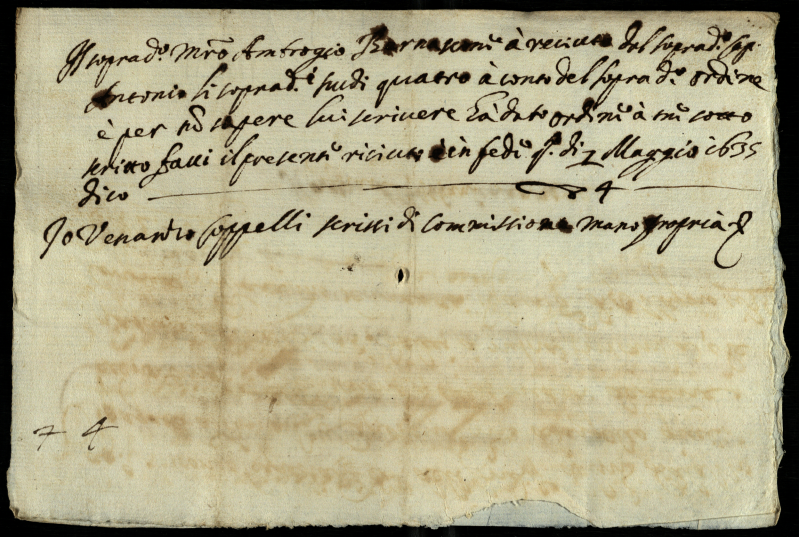 Il soprad.º Mrõ Ambrogio Bernascone à reciuto del soprad.º Sig.
Antonio li soprad.i scudi quatro à conto del soprad.º ordine
è per nõ sapere lui scrivere hà dato ordine à me sotto
scritto facci il presente riciuto è in fede q. di 7 Maggio 1635
dico 4
Io Venantio Coppelli scrissi di commissione mano propria
7 4